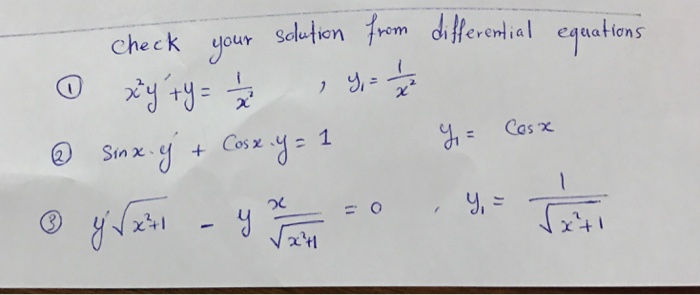 check your solution from differential equations
① x²y' + y = 1/x² , y₁ = 1/x²
② Sinx · y' + Cosx · y = 1 y₁ = Cosx
③ y'√(x²+1) - y x/√(x²+1) = 0 , y₁ = 1/√(x²+1)